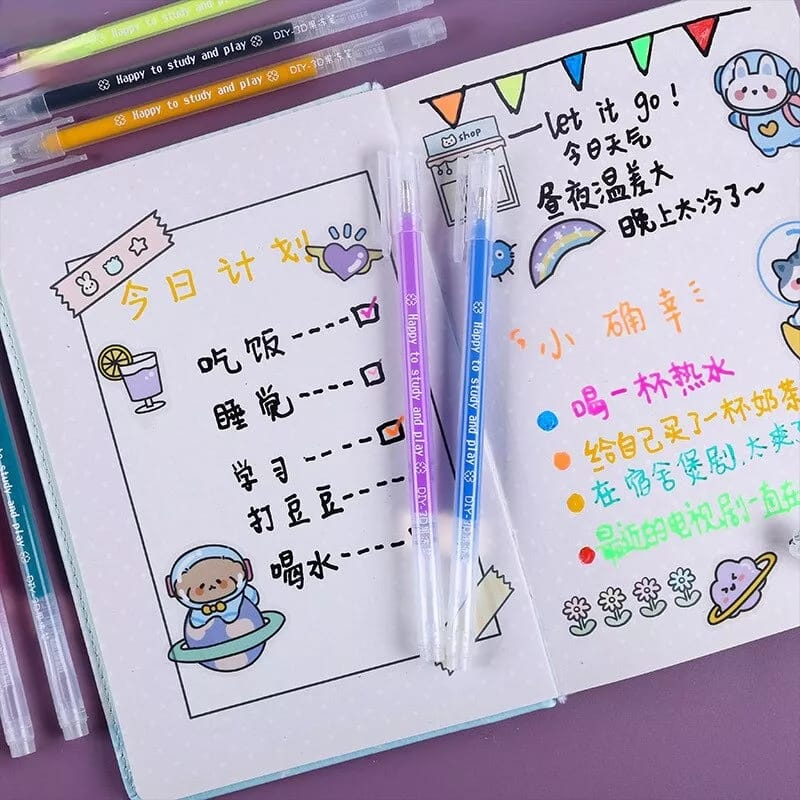 Happy to study and play
Happy to study and play DIY-3D果冻笔
Happy to study and play DIY-3D果冻笔
今日计划
吃饭
睡觉
学习
打豆豆
喝水
Happy to study and play DIY-3D
Happy to study and play DIY-3D
shop
let it go!
今日天气
昼夜温差大
晚上太冷了~
小确幸
喝一杯热水
给自己买了一杯奶茶
在宿舍煲剧,太爽
最近的电视剧一直在
to study and play DIY-3D